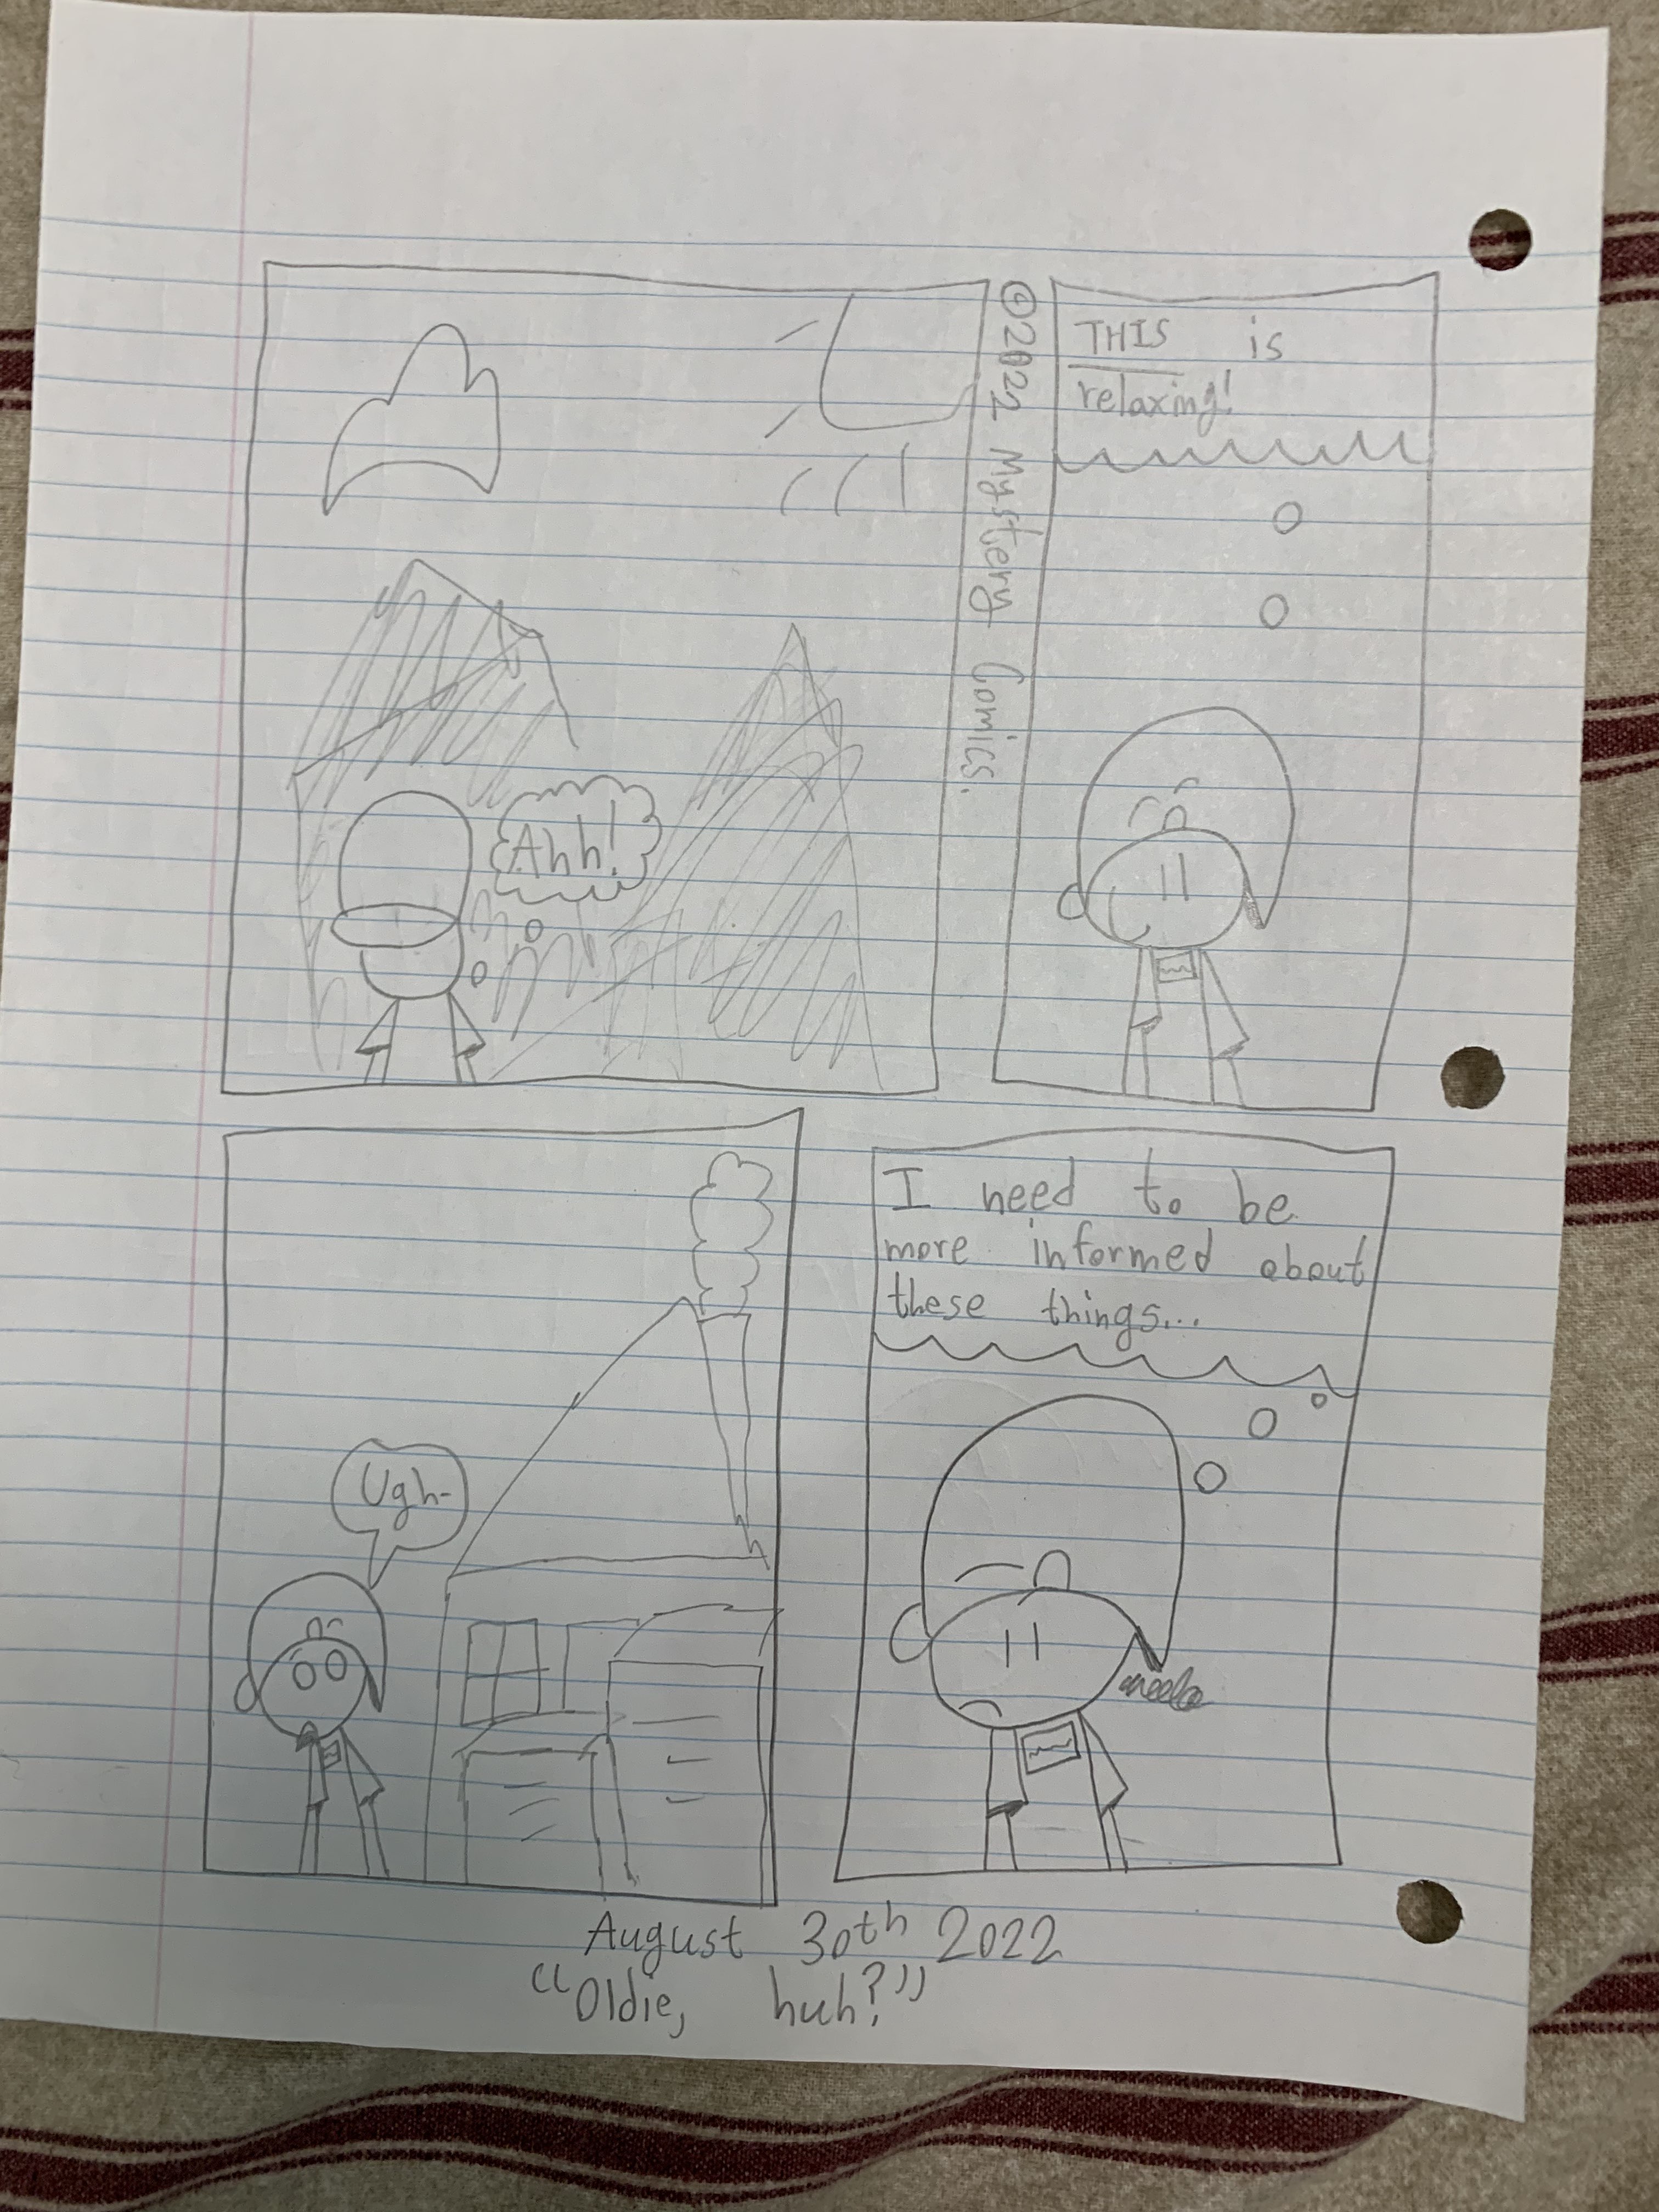 Ahh!
©2022 Mystery Comics.
THIS is
relaxing!
Ugh-
I need to be
more informed about
these things...
August 30th 2022
"Oldie, huh?"